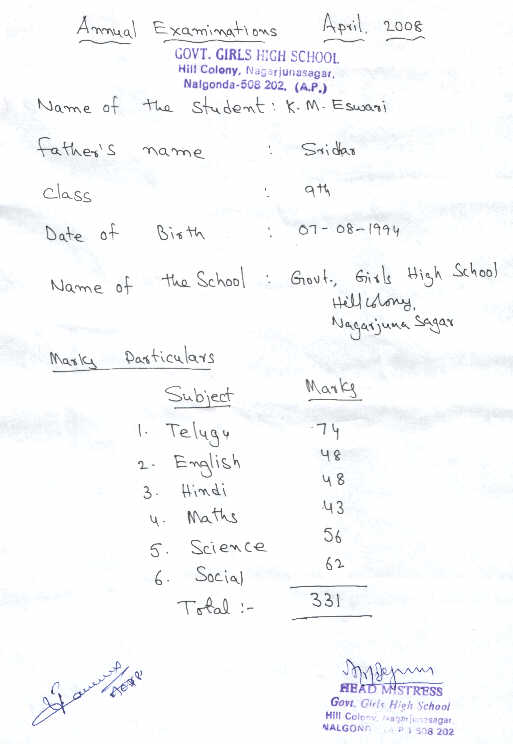 Annual Examinations April. 2008
GOVT. GIRLS HIGH SCHOOL
Hill Colony, Nagarjunasagar,
Nalgonda-508 202. (A.P.)
Name of the Student : K. M. Eswari
Father's name : Sridhar
Class : 9th
Date of Birth : 07-08-1994
Name of the School : Govt., Girls High School
Hill colony,
Nagarjuna Sagar
Marks Particulars
Subject Marks
1. Telugu 74
2. English 48
3. Hindi 48
4. Maths 43
5. Science 56
6. Social 62
Total :- 331
HEAD MISTRESS
Govt. Girls High School
Hill Colony, Nagarjunasagar,
NALGONDA (A.P.) 508 202